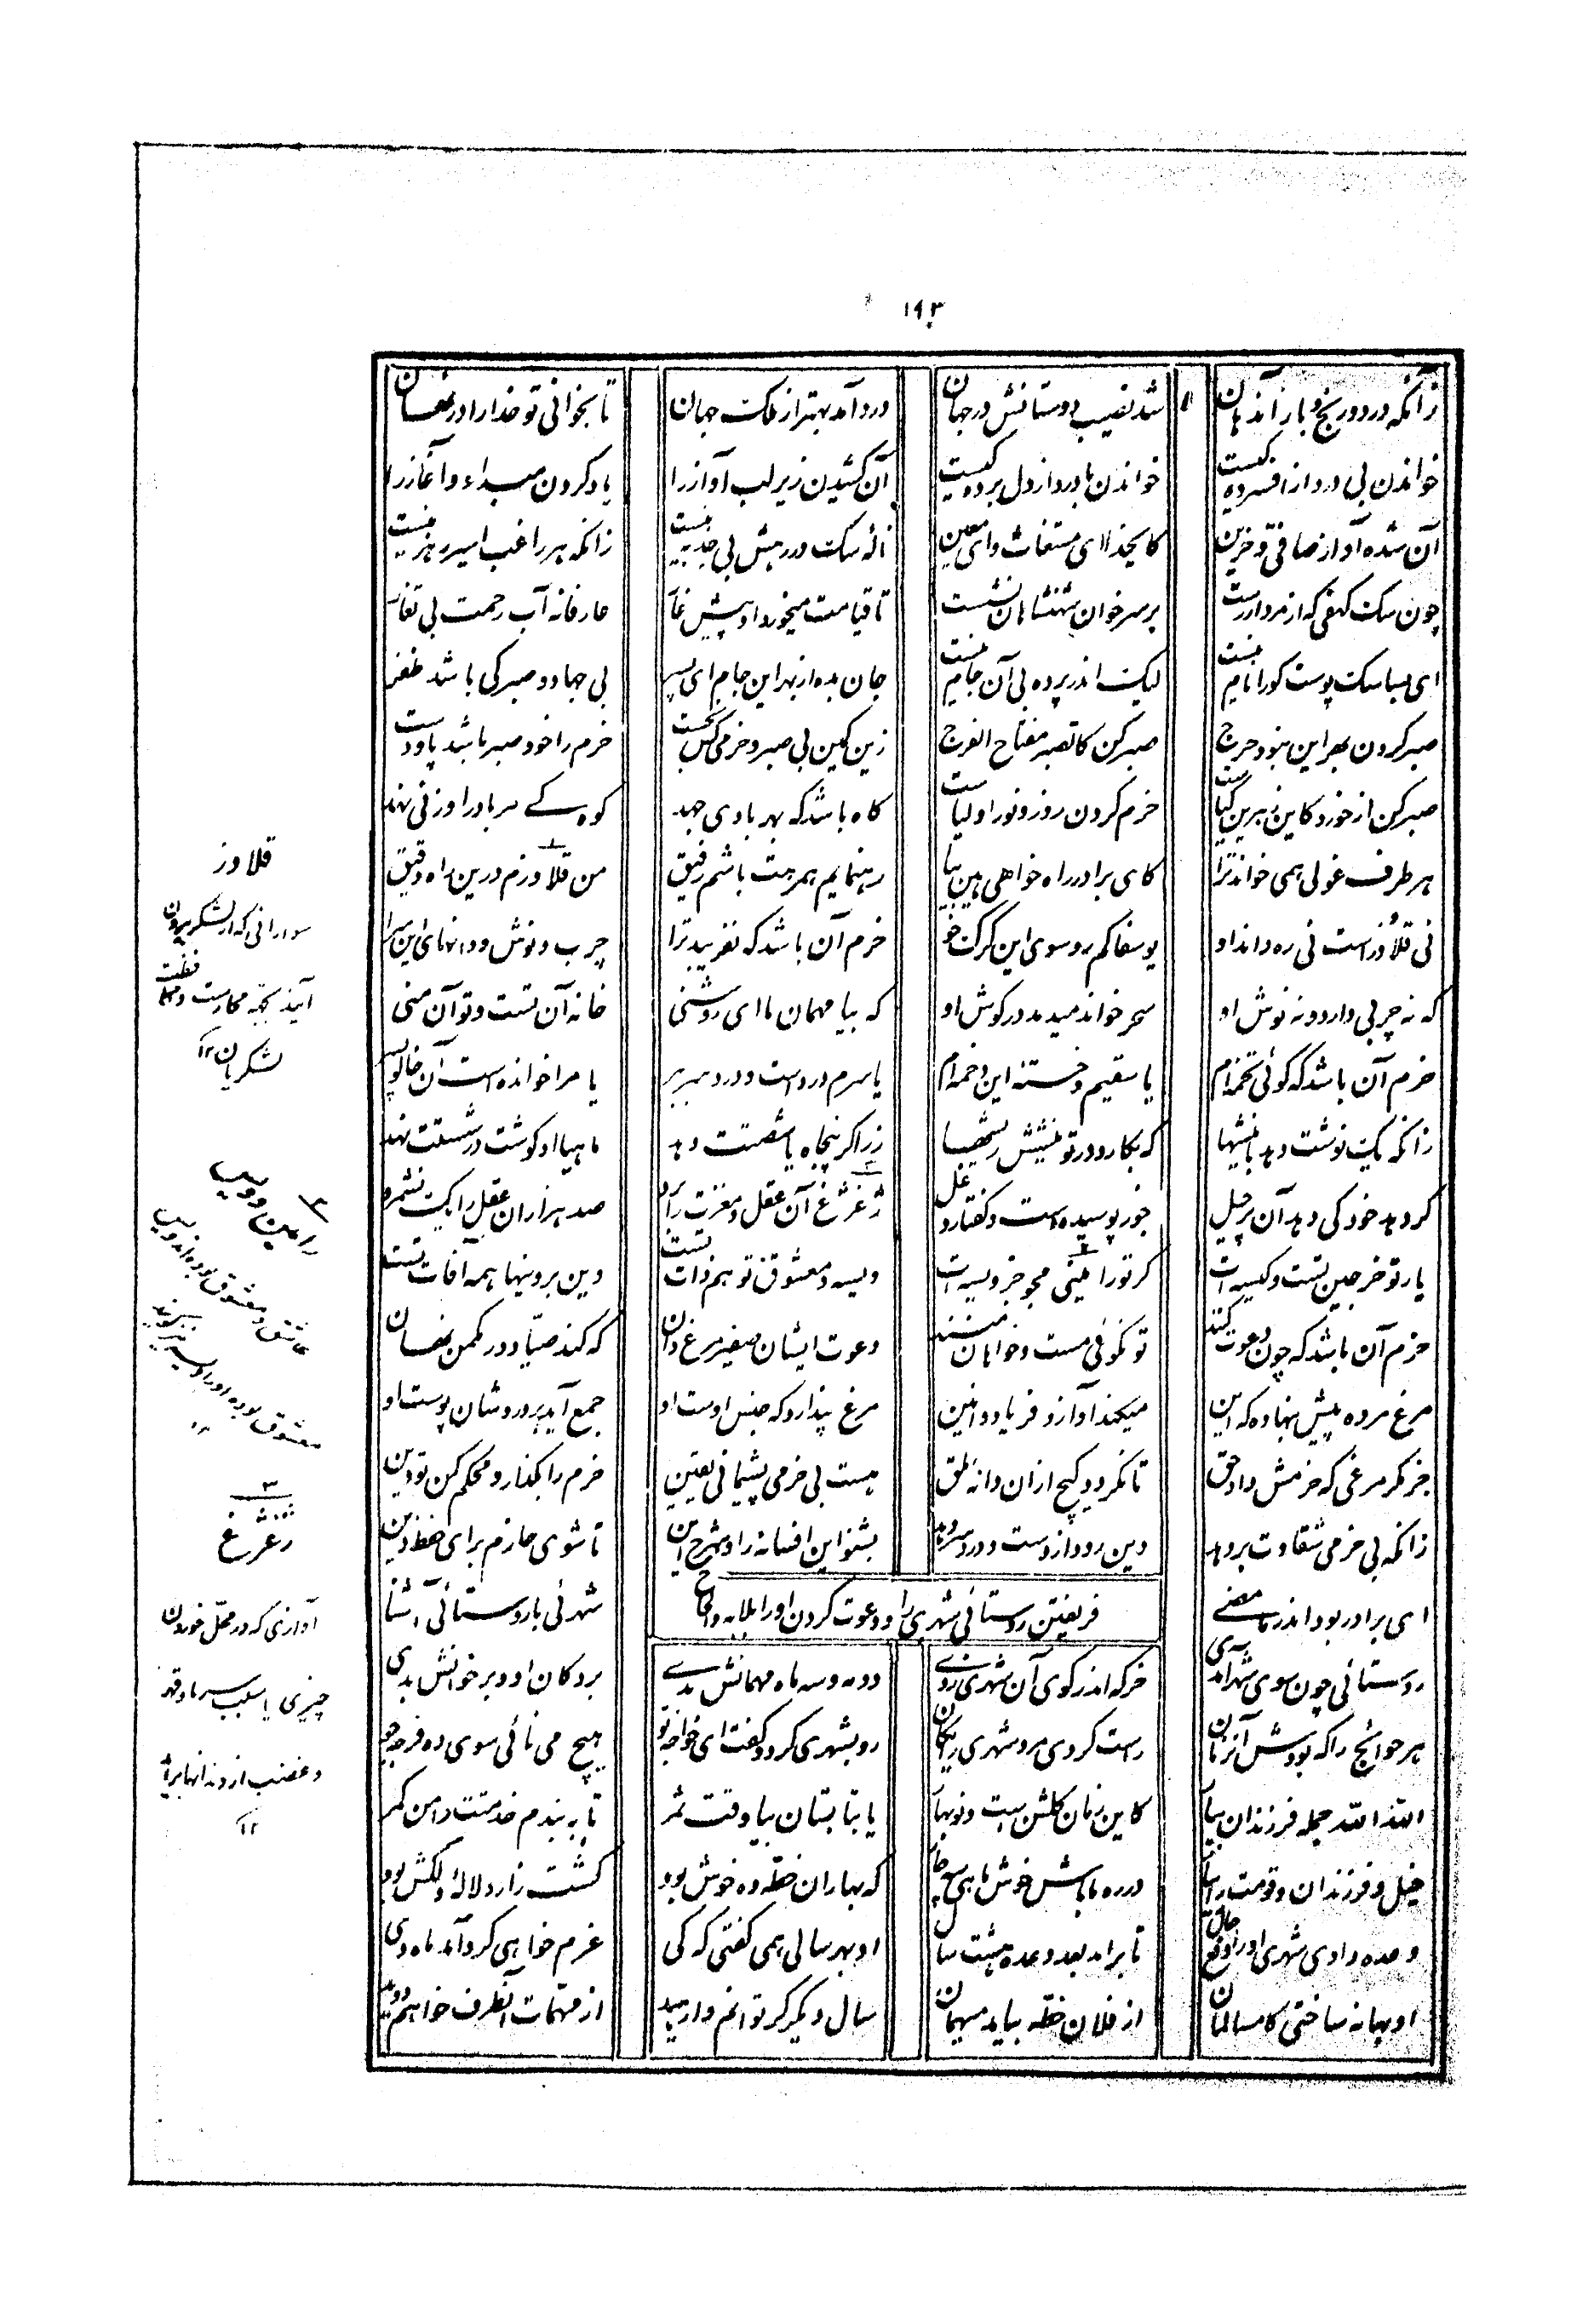 ۱۹۳
زانکه درد و رنج و بار اندهان شد نصیب دوستانش در جهان درد آمد بهتر از ملک جهان تا بخوانی تو خدا را در نهان
خواندن بی درد از افسردگیست خواندن با درد از دل بردگیست آن کشیدن زیر لب آواز را یاد کردن مبداء و آغاز را
آن شده آواز صافی و حزین کایخدا ای مستغاث و ای معین نالهٔ سگ در رهش بی جذبه نیست زانکه هر راغب اسیر رهزنیست
چون سگ کهفی که از مردار رست بر سر خوان شهنشاهان نشست تا قیامت میخورد او پیش غار عارفانه آب رحمت بی تغار
ای بسا سگ پوست کو را نام نیست لیک اندر پرده بی آن جام نیست جان بده از بهر این جام ای پسر بی جهاد و صبر کی باشد ظفر
صبر کردن بهر این نبود حرج صبر کن کالصبر مفتاح الفرج زین کمین بی صبر و حزمی کس نجست حزم را خود صبر باشد پا و دست
صبر کن از خورد کاین زهرین گیاست حزم کردن زور و نور اولیاست کاه باشد که بهر بادی جهد کوه کے مر باد را وزنی نهد
هر طرف غولی همی خواند ترا کای برادر راه خواهی هین بیا رهنمایم همرهت باشم رفیق من قلاوزم درین راه دقیق
نی قلاوز است نی ره داند او یوسفا کم رو سوی این گرگ خو حزم آن باشد که نفریبد ترا چرب و نوش و دانهای این سرا
که نه چربی دارد و نه نوش او سحر خواند میدمد در گوش او که بیا مهمان ما ای روشنی خانه آن تست و تو آن منی
حزم آن باشد که گوئی تخمه‌ام یا سقیم و خسته این دخمه‌ام یا سرم درد است و درد سر ببر یا مرا خوانده است آن خالو پسر
زانکه یک نوشت دهد با نیشها که بکارد در تو نیشش ریشها زر اگر پنجاه یا شصتت دهد ماهیا او گوشت در شستت نهد
گر دهد خود کی دهد آن پر حیل جوز پوسیده است و گفتار دغل ژغژغ آن عقل و مغزت را برد صد هزاران عقل را یک نشمرد
یار تو خرجین تست و کیسه ات گر تو رامینی مجو جز ویسه ات ویسه و معشوق تو هم ذات تست وین برونیها همه آفات تست
حزم آن باشد که چون دعوت کنند تو نگوئی مست و خواهان منند دعوت ایشان صفیر مرغ دان که کند صیاد در مکمن نهان
مرغ مرده پیش بنهاده که این میکند آواز و فریاد و انین مرغ پندارد که جنس اوست او جمع آید بر دردشان پوست او
جز مگر مرغی که حزمش داد حق تا نگردد گیج از ان دانه ملق هست بی حزمی پشیمانی یقین حزم را مگذار و محکم کن تو دین
زانکه بی حزمی شقاوت بر دهد دین رود از دست و درد سر دهد بشنو این افسانه را در شرح این تا شوی حازم برای حفظ دین
فریفتن روستائی شهری را و دعوت کردن او را بلابه و الحاح
ای برادر بود اندر ما مضے شهرئی با روستائی آشنا
روستائی چون سوی شهر آمدی خرگه اندر کوی آن شهری زدے دو مه و سه ماه مهمانش بدے بر دکان او و بر خوانش بدی
هر حوائج را که بودش آنزمان راست کردی مرد شهری رایگان رو بشهری کرد و گفت ای خواجه تو هیچ می نائی سوی ده فرجه جو
الله الله جمله فرزندان بیار کاین زمان گلشن است و نوبهار یا بتابستان بیا وقت ثمر تا ببندم خدمتت دامن کمر
خیل و فرزندان و قومت را بیار در ده ما باش خوش ماهی سه چار که بهاران خطهٔ ده خوش بود کشت زار و لالهٔ دلکش بود
وعده دادی شهری او را دفع حال تا برآمد بعد وعده هشت سال او بهر سالی همی گفتی که کی عزم خواهی کرد آمد ماه دی
او بهانه ساختی کامسالمان از فلان خطه بیامد میهمان سال دیگر گر توانم وارهید از مهمات آنطرف خواهم دوید
قلاوز
سوارانی که از لشکر بیرون
لشکریان ۱۲
۲
رامین و ویس
۳
ژغژغ
آوازی که در محل خوردن
چیزی یا بسبب سرما و قهر
و غضب از دندانها برآید
۱۲